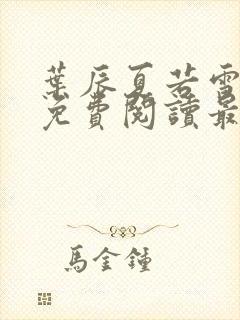 葉辰夏若雪
免費閱讀最
馬金鍾